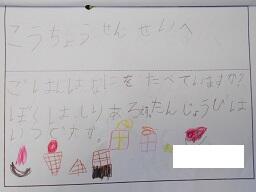 こうちょうせんせいへ
ごはんはなにをたべていますか?
ぼくはしりあるです。たんじょうびは
いつですか。